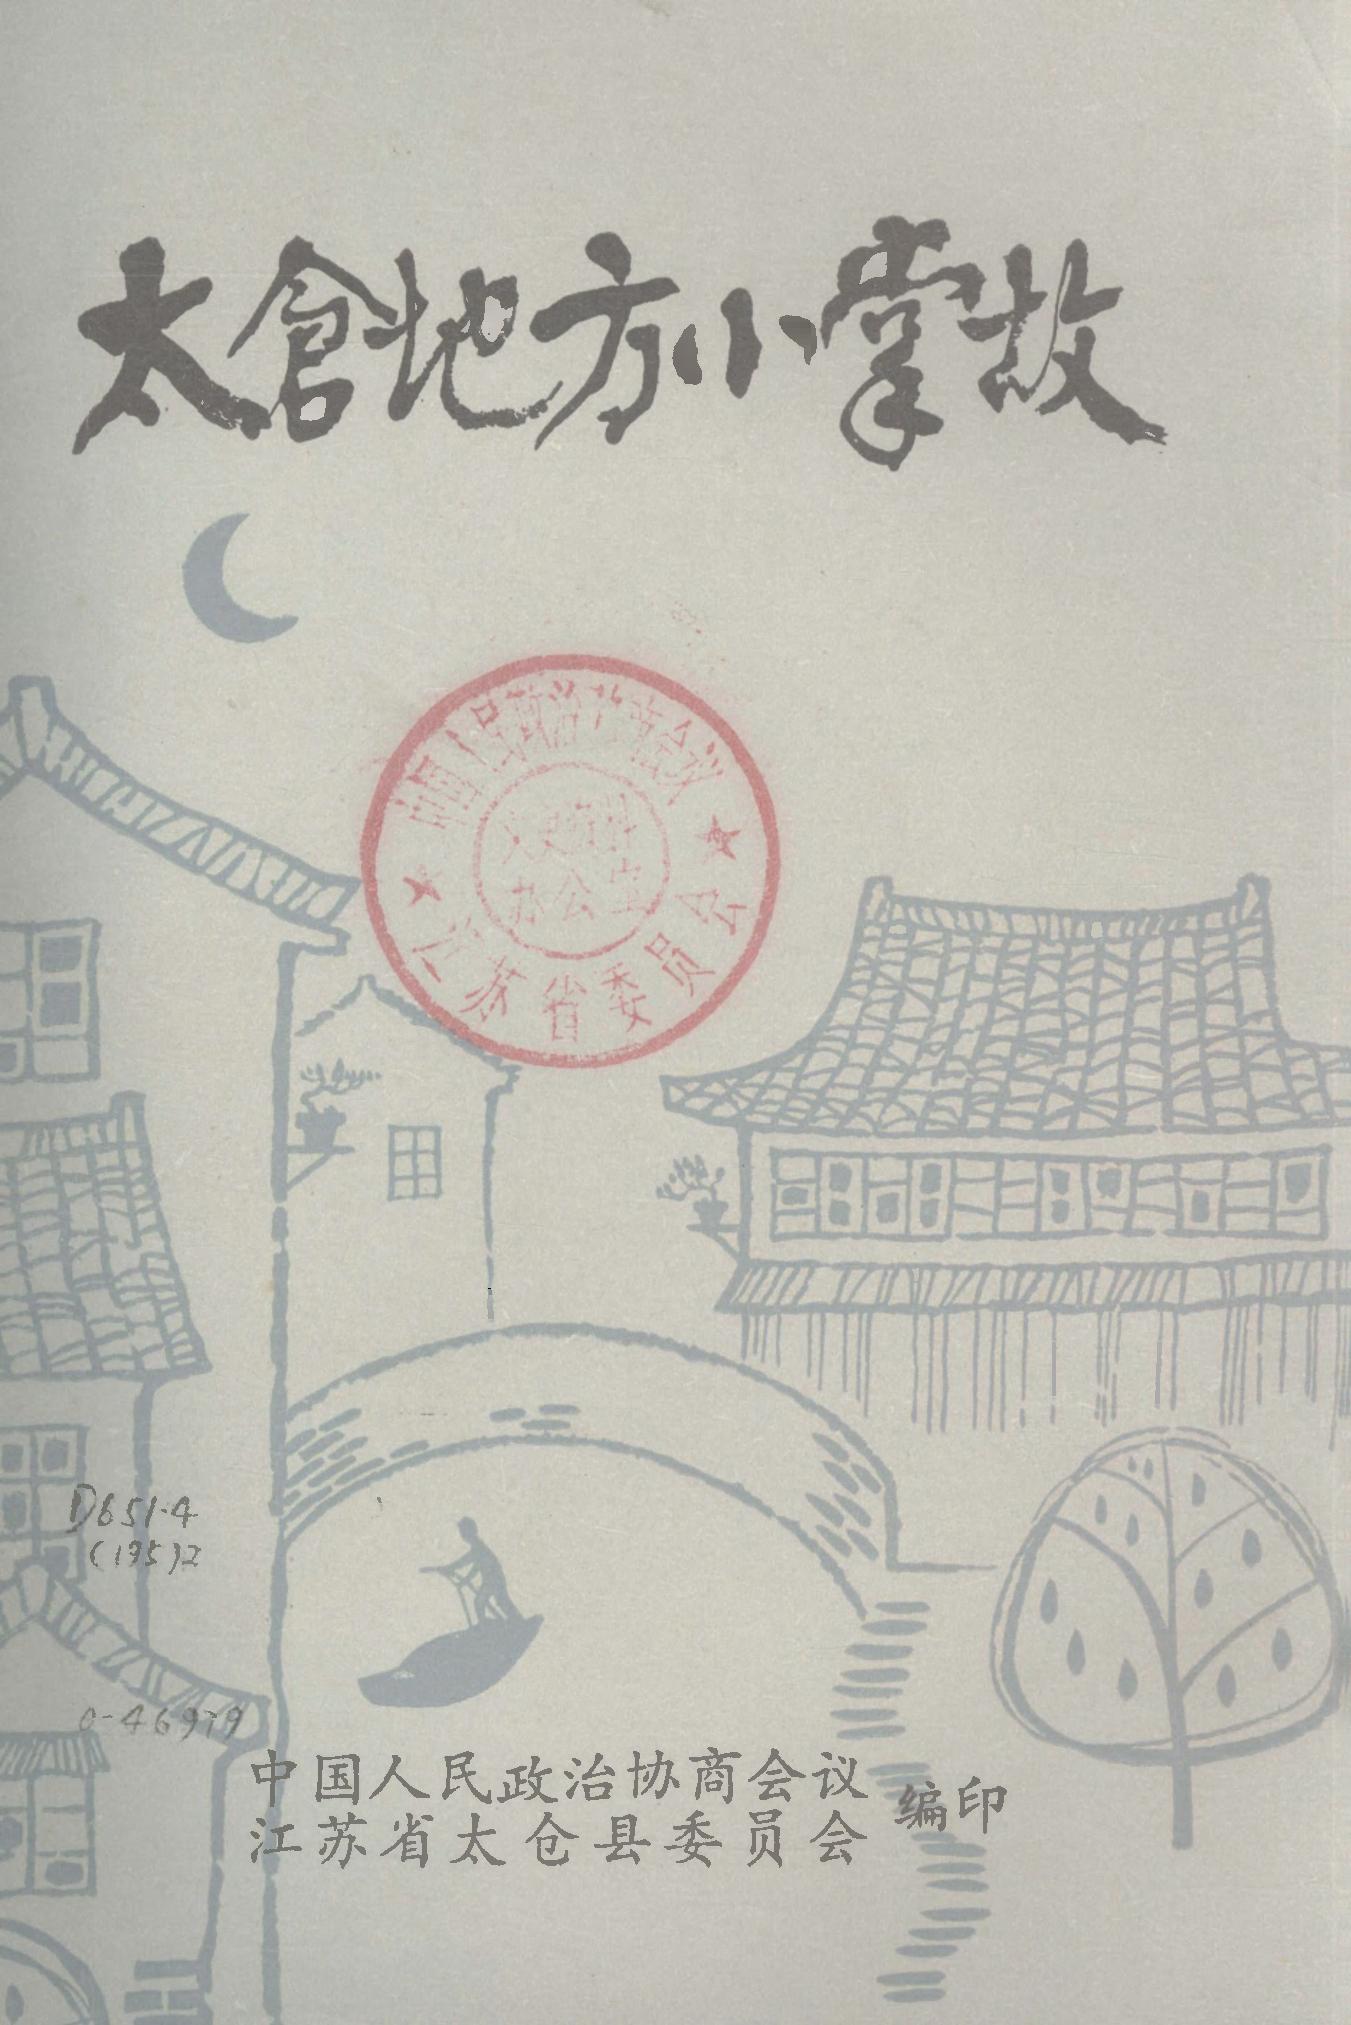 太倉地方小掌故
中国人民政治协商会议
文史资料
办公室
江苏省委员会
D651.4
(195)2
0-46979
中国人民政治协商会议
江苏省太仓县委员会
编印